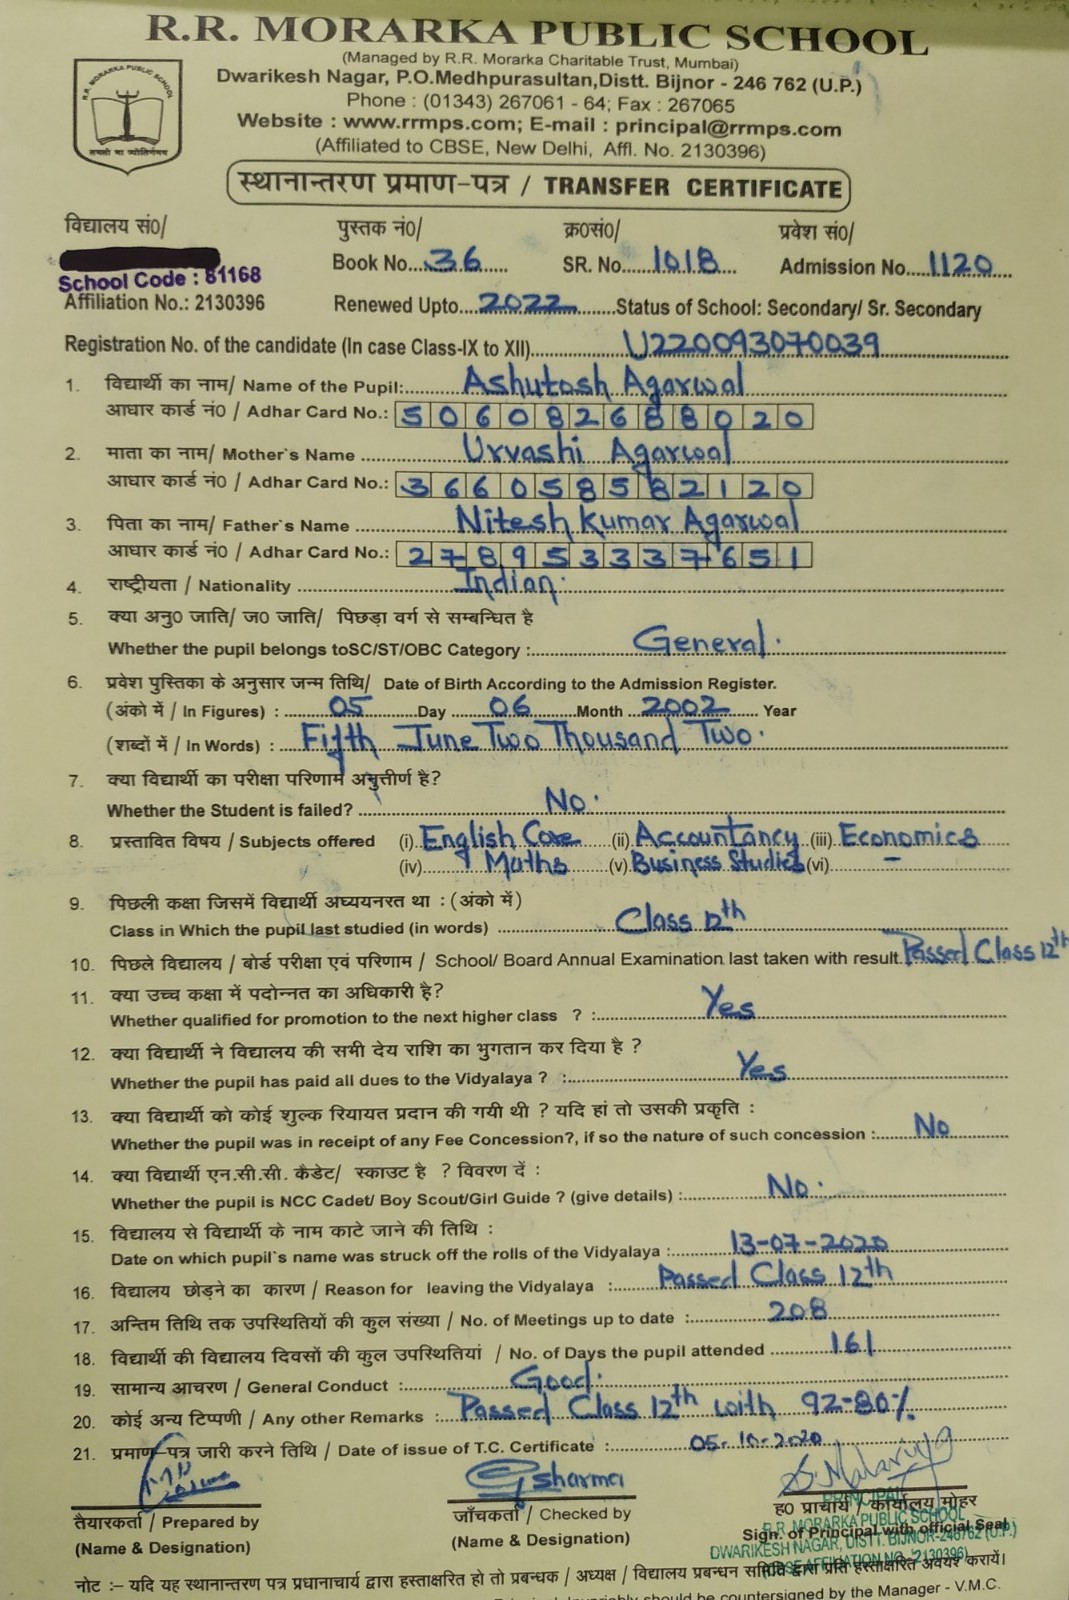 R.R. MORARKA PUBLIC SCHOOL
(Managed by R.R. Morarka Charitable Trust, Mumbai)
Dwarikesh Nagar, P.O.Medhpurasultan,Distt. Bijnor - 246 762 (U.P.)
Phone : (01343) 267061 - 64; Fax : 267065
Website : www.rrmps.com; E-mail : principal@rrmps.com
(Affiliated to CBSE, New Delhi, Affl. No. 2130396)
R.R. MORARKA PUBLIC SCHOOL
स्थानान्तरण प्रमाण-पत्र / TRANSFER CERTIFICATE
विद्यालय सं0/ पुस्तक नं0/ क्र0सं0/ प्रवेश सं0/
Book No. 36 SR. No. 1018 Admission No. 1120
School Code : 81168
Affiliation No.: 2130396 Renewed Upto 2022 Status of School: Secondary/ Sr. Secondary
Registration No. of the candidate (In case Class-IX to XII) U220093070039
1. विद्यार्थी का नाम/ Name of the Pupil: Ashutosh Agarwal
आधार कार्ड नं0 / Adhar Card No.: 506082688020
2. माता का नाम/ Mother's Name Urvashi Agarwal
आधार कार्ड नं0 / Adhar Card No.: 366058582120
3. पिता का नाम/ Father's Name Nitesh Kumar Agarwal
आधार कार्ड नं0 / Adhar Card No.: 278953337651
4. राष्ट्रीयता / Nationality Indian.
5. क्या अनु0 जाति/ ज0 जाति/ पिछड़ा वर्ग से सम्बन्धित है
Whether the pupil belongs toSC/ST/OBC Category : General.
6. प्रवेश पुस्तिका के अनुसार जन्म तिथि/ Date of Birth According to the Admission Register.
(अंको में / In Figures) : 05 Day 06 Month 2002 Year
(शब्दों में / In Words) : Fifth June Two Thousand Two.
7. क्या विद्यार्थी का परीक्षा परिणाम अनुत्तीर्ण है?
Whether the Student is failed? No.
8. प्रस्तावित विषय / Subjects offered (i) English Core (ii) Accountancy (iii) Economics
(iv) Maths (v) Business Studies (vi) –
9. पिछली कक्षा जिसमें विद्यार्थी अध्ययनरत था : (अंको में)
Class in Which the pupil last studied (in words) Class 12th
10. पिछले विद्यालय / बोर्ड परीक्षा एवं परिणाम / School/ Board Annual Examination last taken with result. Passed Class 12th
11. क्या उच्च कक्षा में पदोन्नत का अधिकारी है?
Whether qualified for promotion to the next higher class ? : Yes
12. क्या विद्यार्थी ने विद्यालय की सभी देय राशि का भुगतान कर दिया है ?
Whether the pupil has paid all dues to the Vidyalaya ? : Yes
13. क्या विद्यार्थी को कोई शुल्क रियायत प्रदान की गयी थी ? यदि हां तो उसकी प्रकृति :
Whether the pupil was in receipt of any Fee Concession?, if so the nature of such concession : No
14. क्या विद्यार्थी एन.सी.सी. कैडेट/ स्काउट है ? विवरण दें :
Whether the pupil is NCC Cadet/ Boy Scout/Girl Guide ? (give details) : No.
15. विद्यालय से विद्यार्थी के नाम काटे जाने की तिथि :
Date on which pupil's name was struck off the rolls of the Vidyalaya : 13-07-2020
16. विद्यालय छोड़ने का कारण / Reason for leaving the Vidyalaya : Passed Class 12th
17. अन्तिम तिथि तक उपस्थितियों की कुल संख्या / No. of Meetings up to date : 208
18. विद्यार्थी की विद्यालय दिवसों की कुल उपस्थितियां / No. of Days the pupil attended 161
19. सामान्य आचरण / General Conduct : Good.
20. कोई अन्य टिप्पणी / Any other Remarks : Passed Class 12th with 92-80%
21. प्रमाण-पत्र जारी करने तिथि / Date of issue of T.C. Certificate : 05-10-2020
G Sharma
तैयारकर्ता / Prepared by जाँचकर्ता / Checked by ह0 प्राचार्य / कार्यालय मोहर
(Name & Designation) (Name & Designation) Sign. of Principal with official Seal
PRINCIPAL
R.R. MORARKA PUBLIC SCHOOL
DWARIKESH NAGAR, DISTT. BIJNOR-246762 (U.P.)
AFFILIATION NO. '2130396)
नोट :– यदि यह स्थानान्तरण पत्र प्रधानाचार्य द्वारा हस्ताक्षरित हो तो प्रबन्धक / अध्यक्ष / विद्यालय प्रबन्धन समिति द्वारा प्रति हस्ताक्षरित अवश्य करायें।
should be countersigned by the Manager - V.M.C.